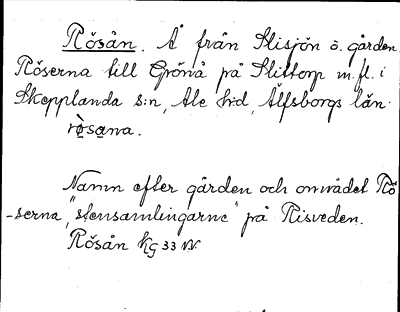 Rösån. Å från Slisjön ö. gården
Röserna till Grönå på Slittorp m.fl. i
Skepplanda s:n, Ale h:d, Älfsborgs län.
rò̤sa̤na.
Namn efter gården och området Rö
-serna, "stensamlingarne" på Risveden.
Rösån Kg 33 NV